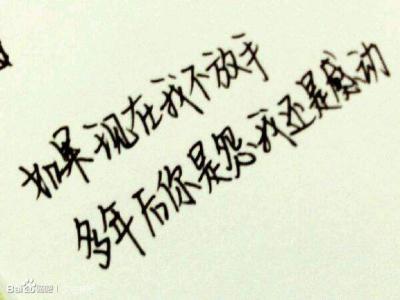 如果现在我不放手
多年后你是怨我还是感动
Baidu贴吧